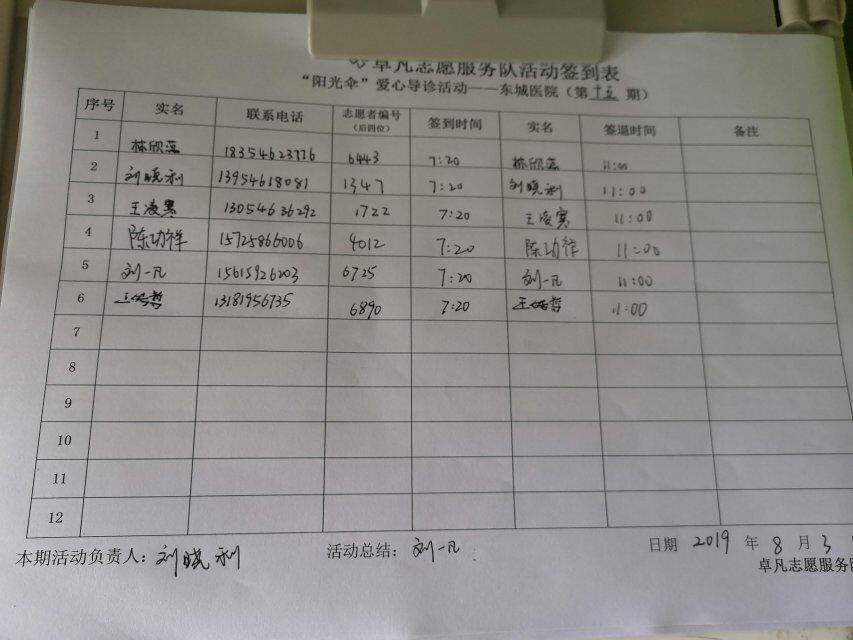 卓凡志愿服务队活动签到表
“阳光伞”爱心导诊活动——东城医院（第十五期）
序号 实名 联系电话 志愿者编号（后四位） 签到时间 实名 签退时间 备注
1 栋欣蕊 18354623776 6443 7:20 栋欣蕊 11:00
2 刘晓利 13954618081 1347 7:20 刘晓利 11:00
3 王凌寞 13054636292 1722 7:20 王凌寞 11:00
4 陈功祥 15725866006 4012 7:20 陈功祥 11:00
5 刘一凡 15615926203 6725 7:20 刘一凡 11:00
6 王 哲 13181956735 6890 7:20 王 哲 11:00
7
8
9
10
11
12
本期活动负责人：刘晓利 活动总结：刘一凡 日期 2019 年 8 月 3
卓凡志愿服务